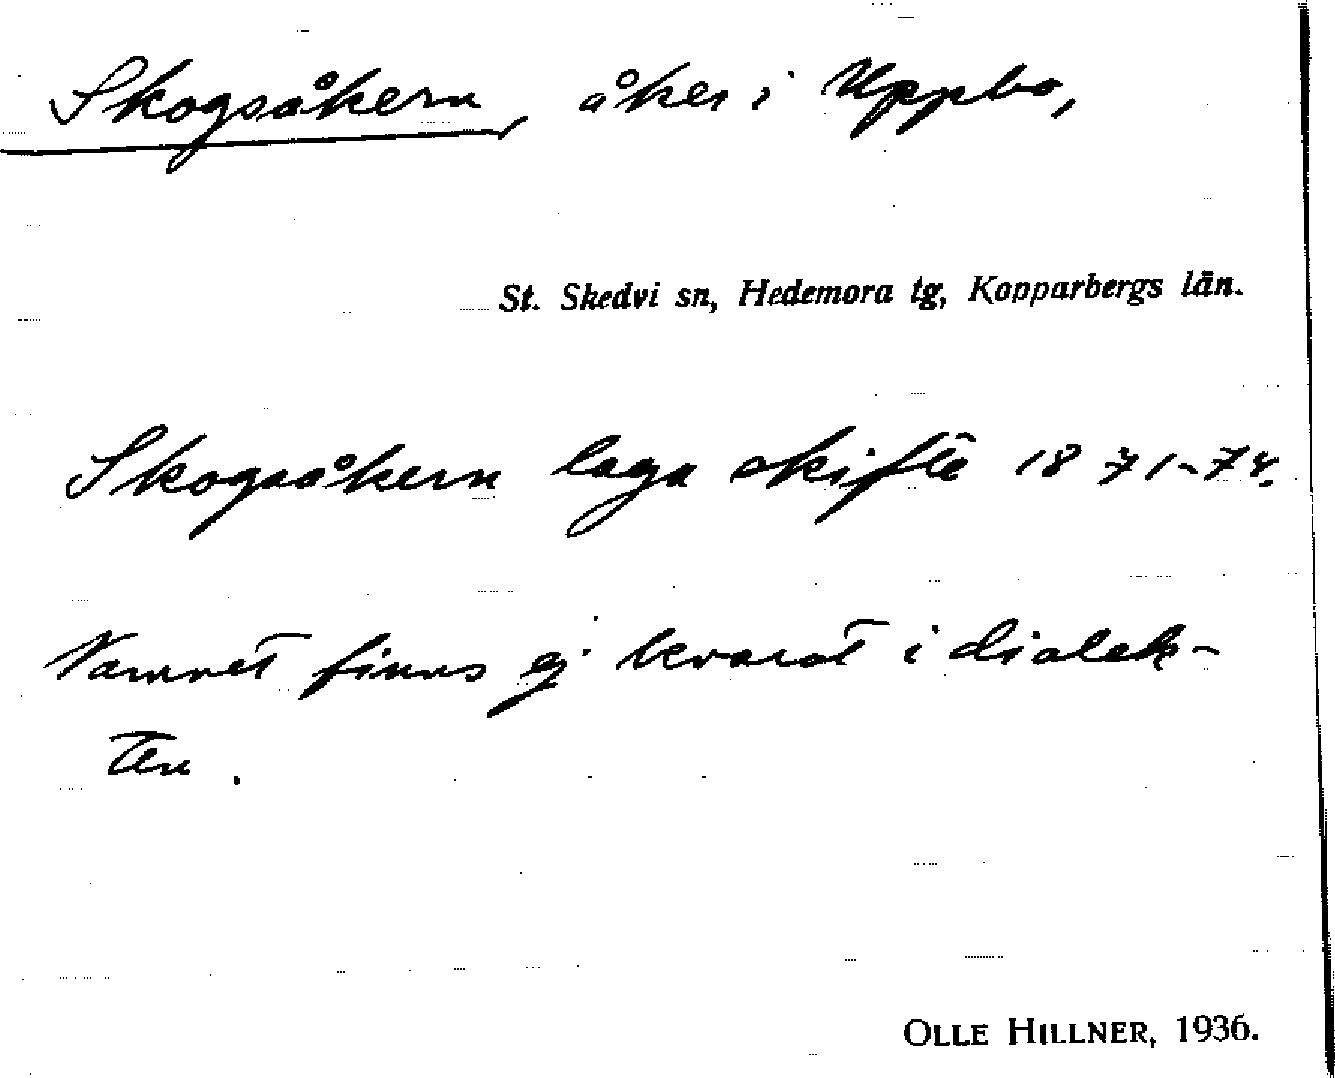 Skogsåkern, åker i Uppbo,
St. Skedvi sn, Hedemora tg, Kopparbergs län.
Skogsåkern laga skifte 1871-74.
Namnet finns ej kvarat i dialek-
ten.
OLLE HILLNER, 1936.